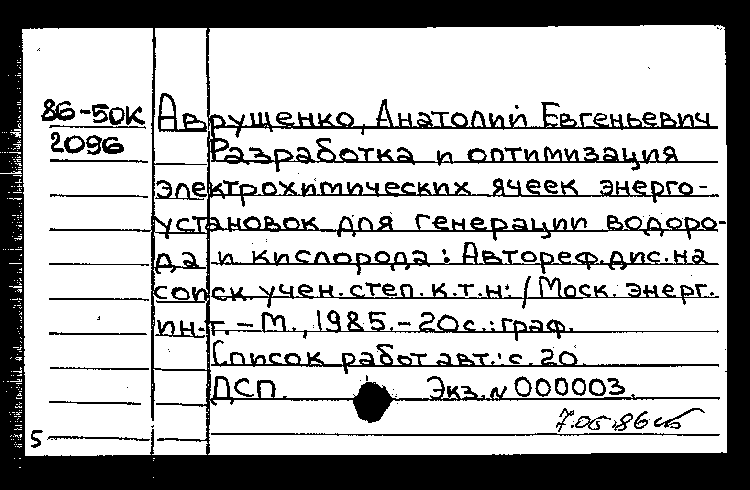 86-50К Аврущенко, Анатолий Евгеньевич
2096 Разработка и оптимизация
электрохимических ячеек энерго-
установок для генерации водоро-
да и кислорода : Автореф.дис.на
соиск.учен.степ.к.т.н: /Моск.энерг.
ин-т. - М., 1985.-20с.:граф.
Список работ авт.:с.20.
ДСП. Экз.№000003.
7.05.86
5